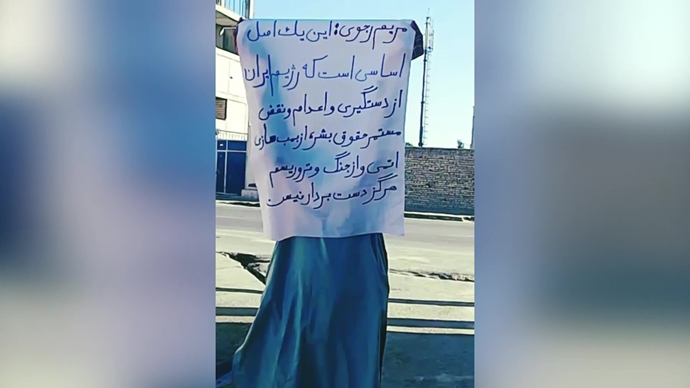 مریم رجوی: این یک اصل
اساسی است که رژیم ایران
از دستگیری و اعدام و نقض
مستمر حقوق بشر، از بمب سازی
اتمی و از جنگ و تروریسم
هرگز دست بردار نیس